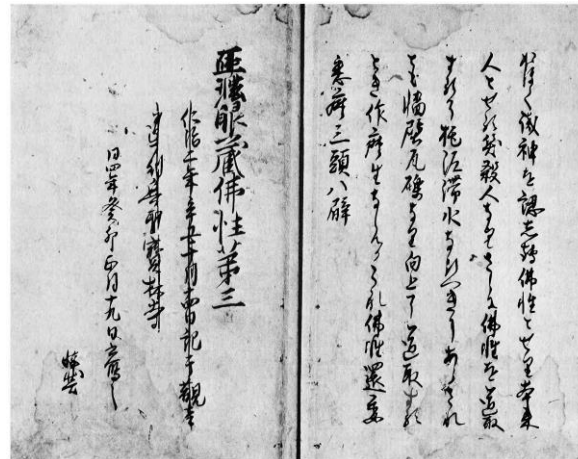 ひさしく識神を認して佛性とせり本来
人とせる笑殺人なりさらに佛性を道取
するに拕泥滞水なるへきにあらされ
とも墻壁瓦礫なり向上に道取する
とき作麼生ならんかこれ佛性還委
悉麼三頭八臂
正法眼藏佛性第三
仁治二年辛丑十月十四日記于觀音
導利興聖寶林寺
同四年癸卯正月十九日書寫之
懷弉